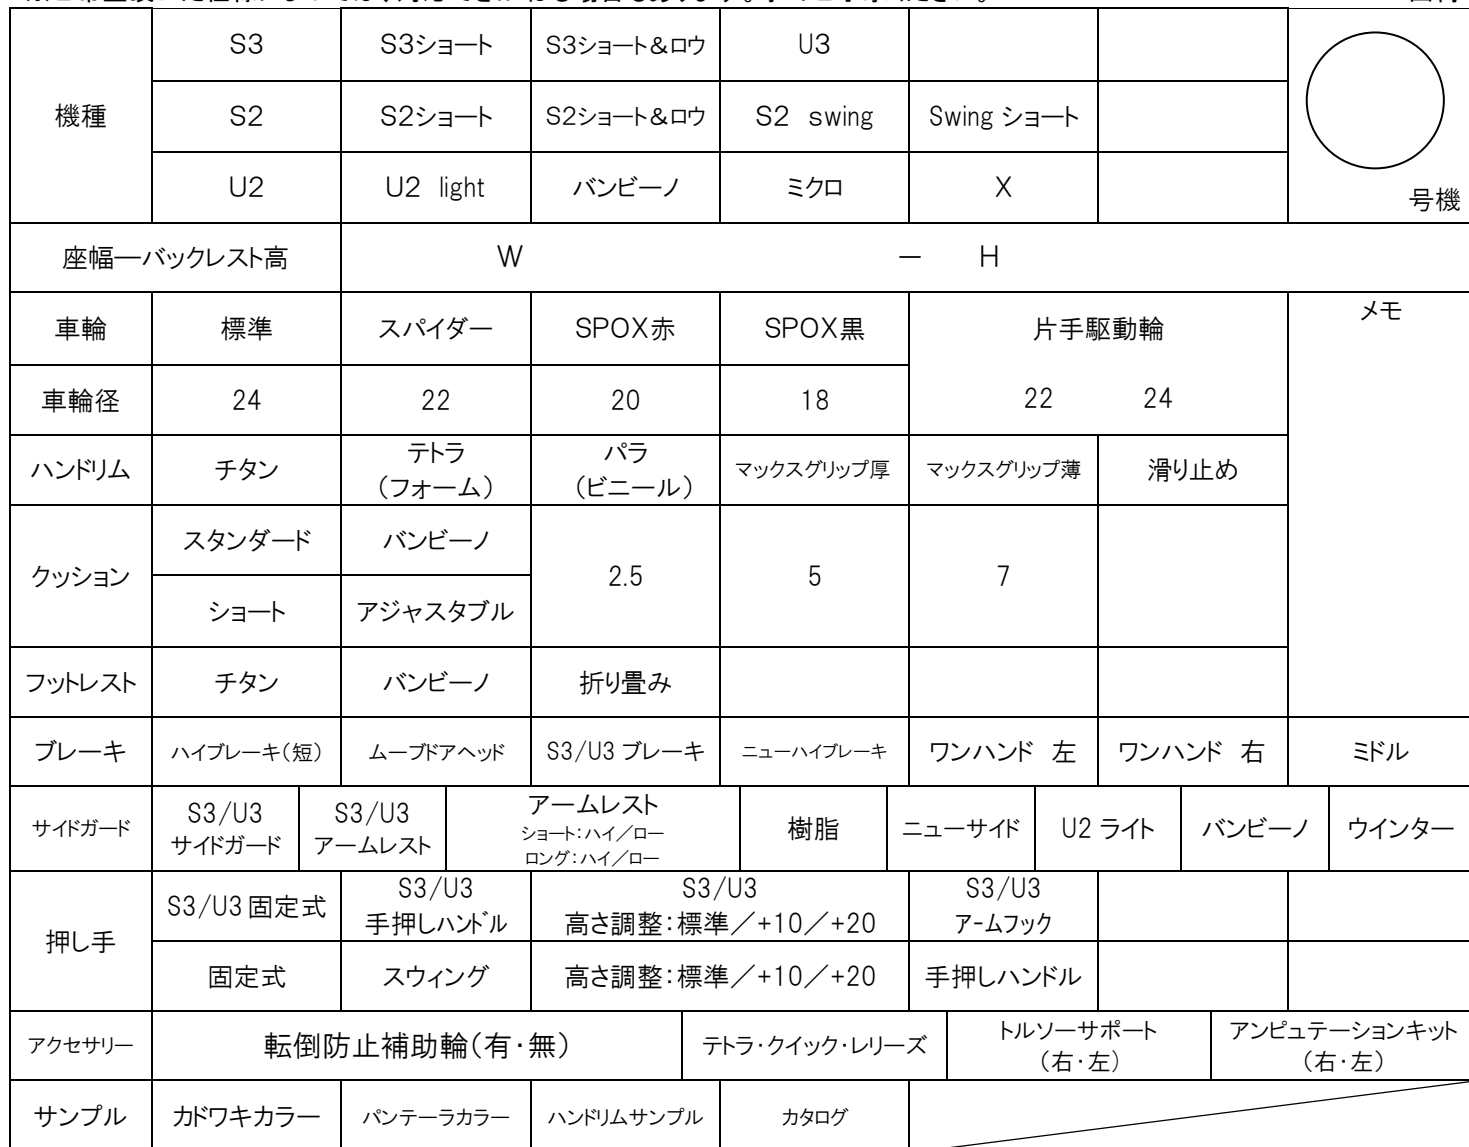 機種 S3 S3ショート S3ショート&ロウ U3
S2 S2ショート S2ショート&ロウ S2 swing Swing ショート
U2 U2 light バンビーノ ミクロ X
号機
座幅―バックレスト高 W － H
車輪 標準 スパイダー SPOX赤 SPOX黒 片手駆動輪 メモ
車輪径 24 22 20 18 22 24
ハンドリム チタン テトラ(フォーム) パラ(ビニール) マックスグリップ厚 マックスグリップ薄 滑り止め
クッション スタンダード バンビーノ 2.5 5 7
ショート アジャスタブル
フットレスト チタン バンビーノ 折り畳み
ブレーキ ハイブレーキ(短) ムーブドアヘッド S3/U3 ブレーキ ニューハイブレーキ ワンハンド 左 ワンハンド 右 ミドル
サイドガード S3/U3 サイドガード S3/U3 アームレスト アームレスト ショート:ハイ/ロー ロング:ハイ/ロー 樹脂 ニューサイド U2 ライト バンビーノ ウインター
押し手 S3/U3 固定式 S3/U3 手押しハンドル S3/U3 高さ調整:標準/+10/+20 S3/U3 アームフック
固定式 スウィング 高さ調整:標準/+10/+20 手押しハンドル
アクセサリー 転倒防止補助輪(有・無) テトラ・クイック・レリーズ トルソーサポート(右・左) アンピュテーションキット(右・左)
サンプル カドワキカラー パンテーラカラー ハンドリムサンプル カタログ